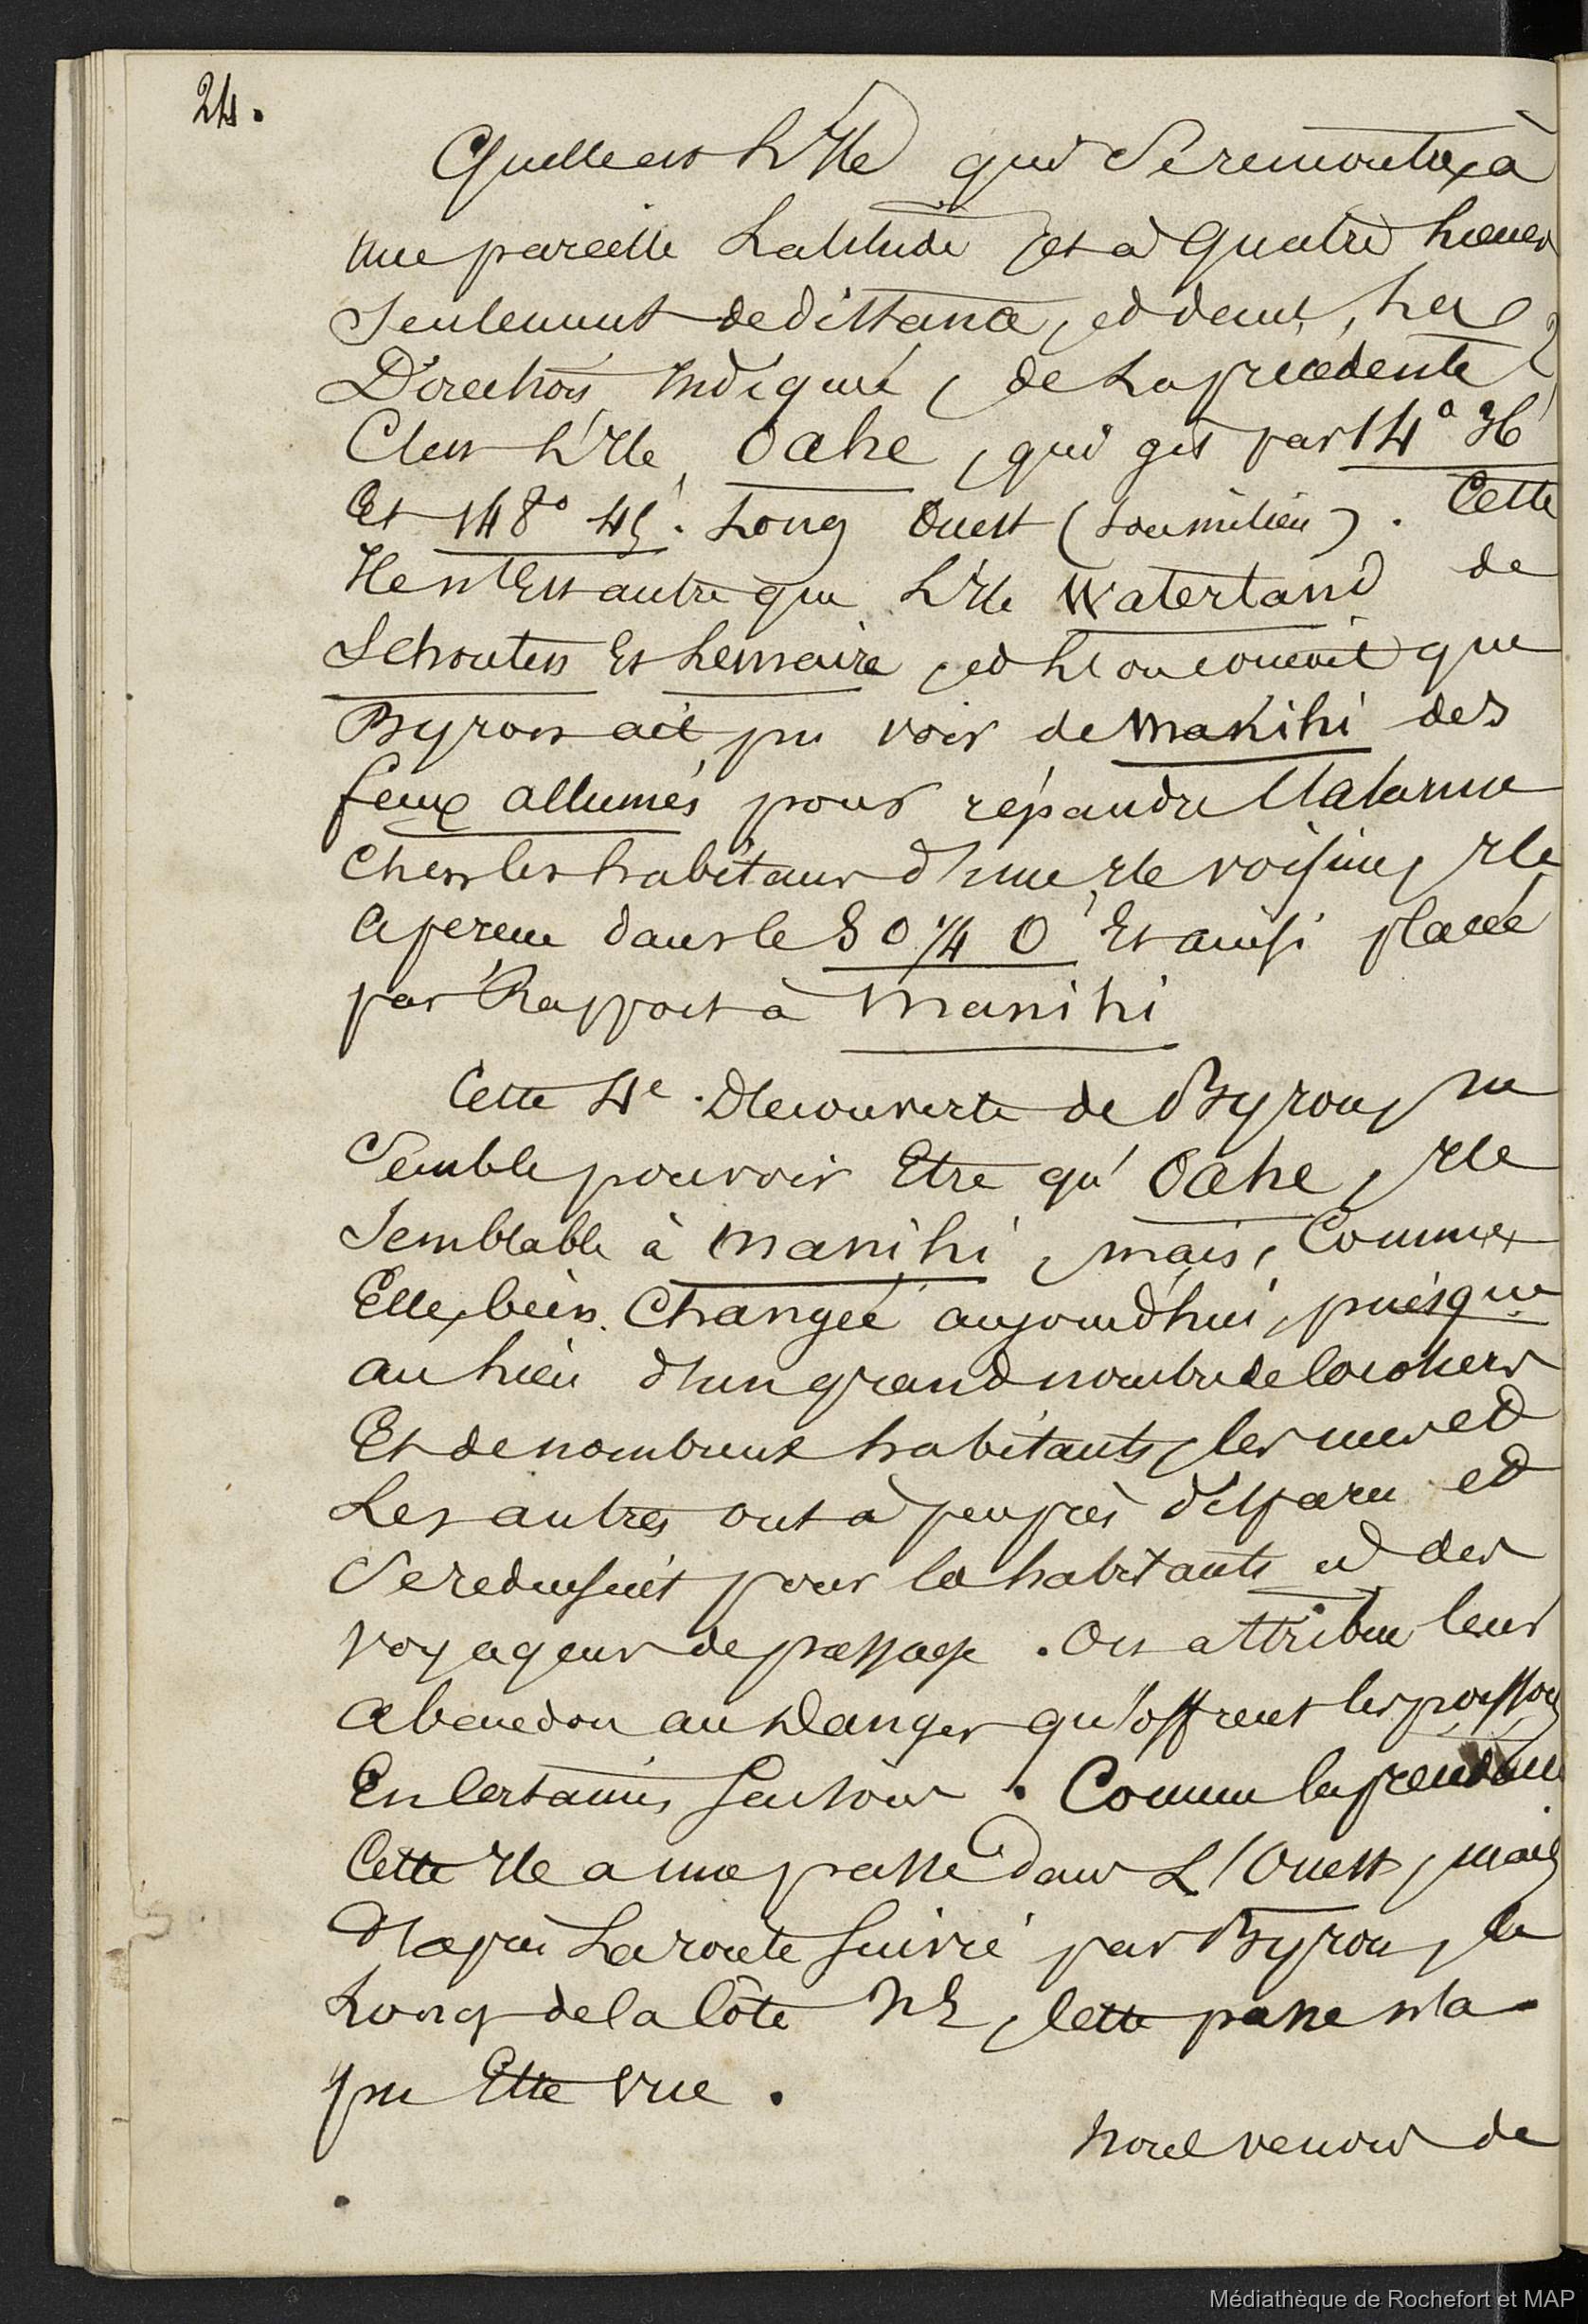 24.
Quelle est L'Ile qui se rencontre, à
une pareille Latitude, et à quatre lieues
Seulement de distance, et dans, La
Direction Indiquée, de La précédente ?
C'est L'Ile, Oahe, qui git par 14° 36'
Et 148° 45'. Long Ouest (son milieu). Cette
Ile n'Est autre que L'Ile Watertand de
Schouten Et Lemaire, et L'on conçoit que
Byron ait pu voir de Manihi des
feux allumés pour répandre l'alarme
Chez les habitans d'une Ile voisine, Ile
Aperçue dans le S O 1/4 O Et ainsi placée
par Rapport à Manihi
Cette 4e. Découverte de Byron, ne
Semble pouvoir Etre qu' Oahe, Ile
Semblable à Manihi, mais, Comme
Elle, bien Changée aujourd'hui, puisque
au lieu d'un grand nombre de Cocotiers
Et de nombreux habitants, les uns et
Les autres ont à peu près disparu et
Se reduisent pour la habitants à des
voyageurs de passage. On attribue leur
Abandon au Danger qu'offrent les poissons
En Certaines Saisons. Comme la précédente
Cette Ile a une passe dans L'Ouest, mais
D'après La route Suivie par Byron, le
Long de la Côte NE, Cette passe n'a
pu Etre vue.
Nous venons de
Médiathèque de Rochefort et MAP